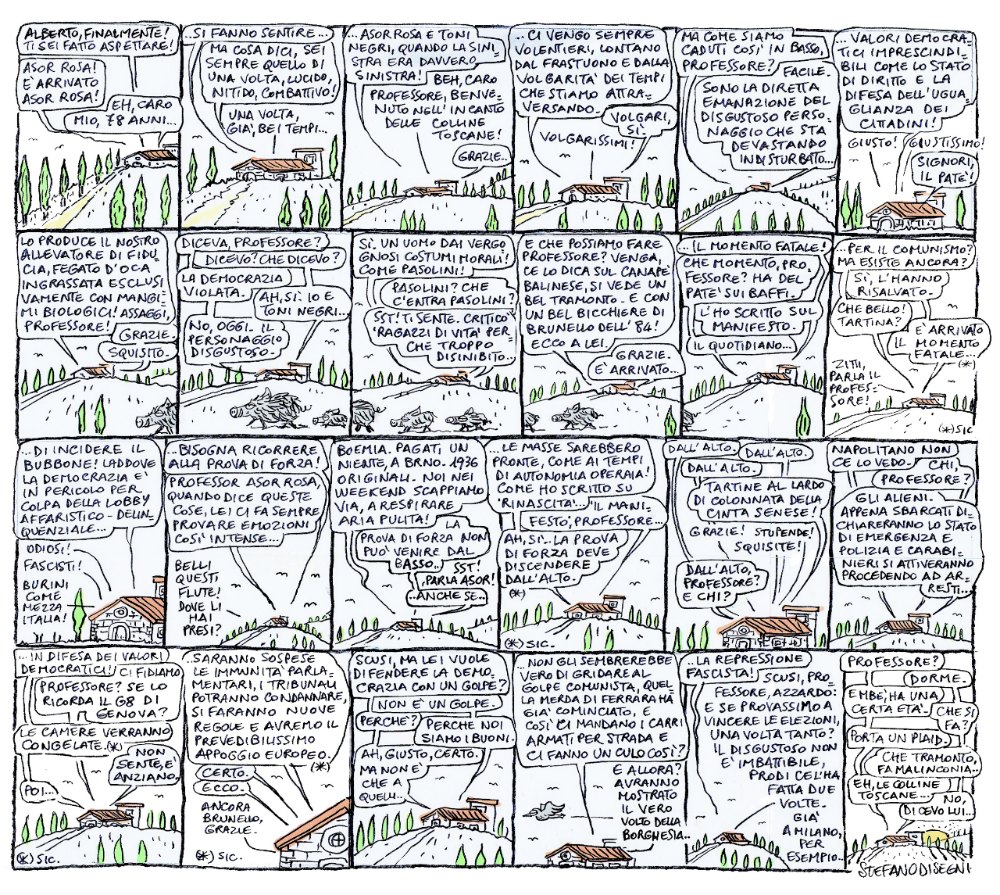 ALBERTO, FINALMENTE!
TI SEI FATTO ASPETTARE!
ASOR ROSA!
È ARRIVATO
ASOR ROSA!
EH, CARO
MIO, 78 ANNI...
..SI FANNO SENTIRE...
MA COSA DICI, SEI
SEMPRE QUELLO DI
UNA VOLTA, LUCIDO,
NITIDO, COMBATTIVO!
UNA VOLTA,
GIÀ, BEI TEMPI...
...ASOR ROSA E TONI
NEGRI, QUANDO LA SINI_
STRA ERA DAVVERO
SINISTRA!
BEH, CARO
PROFESSORE, BENVE_
NUTO NELL'INCANTO
DELLE COLLINE
TOSCANE!
GRAZIE..
..CI VENGO SEMPRE
VOLENTIERI, LONTANO
DAL FRASTUONO E DALLA
VOLGARITÀ DEI TEMPI
CHE STIAMO ATTRA_
VERSANDO.
VOLGARI,
SÌ.
VOLGARISSIMI!
MA COME SIAMO
CADUTI COSÌ IN BASSO,
PROFESSORE?
FACILE.
SONO LA DIRETTA
EMANAZIONE DEL
DISGUSTOSO PERSO_
NAGGIO CHE STA
DEVASTANDO
INDISTURBATO...
...VALORI DEMOCRA_
TICI IMPRESCINDI_
BILI COME LO STATO
DI DIRITTO E LA
DIFESA DELL'UGUA_
GLIANZA DEI
CITTADINI!
GIUSTO!
GIUSTISSIMO!
SIGNORI,
IL PATE'!
LO PRODUCE IL NOSTRO
ALLEVATORE DI FIDU_
CIA, FEGATO D'OCA
INGRASSATA ESCLUSI_
VAMENTE CON MANGI_
MI BIOLOGICI! ASSAGGI,
PROFESSORE!
GRAZIE.
SQUISITO.
DICEVA, PROFESSORE?
DICEVO? CHE DICEVO?
LA DEMOCRAZIA
VIOLATA.
AH, SÌ. IO E
TONI NEGRI...
NO, OGGI. IL
PERSONAGGIO
DISGUSTOSO.
SÌ. UN UOMO DAI VERGO_
GNOSI COSTUMI MORALI!
COME PASOLINI!
PASOLINI? CHE
C'ENTRA PASOLINI?
SST! TI SENTE. CRITICÒ
'RAGAZZI DI VITA' PER_
CHE TROPPO
DISINIBITO...
E CHE POSSIAMO FARE
PROFESSORE? VENGA,
CE LO DICA SUL CANAPÈ
BALINESE, SI VEDE UN
BEL TRAMONTO. E CON
UN BEL BICCHIERE DI
BRUNELLO DELL'84!
ECCO A LEI.
GRAZIE.
E' ARRIVATO...
...IL MOMENTO FATALE!
CHE MOMENTO, PRO_
FESSORE? HA DEL
PATE' SUI BAFFI.
L'HO SCRITTO SUL
MANIFESTO.
IL QUOTIDIANO...
...PER IL COMUNISMO?
MA ESISTE ANCORA?
SÌ, L'HANNO
RISALVATO.
CHE BELLO!
TARTINA?
E' ARRIVATO
IL MOMENTO
FATALE...
(*)
ZITTI,
PARLA IL
PROFES_
SORE!
(*) SIC
...DI INCIDERE IL
BUBBONE! LADDOVE
LA DEMOCRAZIA E'
IN PERICOLO PER
COLPA DELLA LOBBY
AFFARISTICO-DELIN_
QUENZIALE...
ODIOSI!
FASCISTI!
BURINI
COME
MEZZA
ITALIA!
...BISOGNA RICORRERE
ALLA PROVA DI FORZA!
PROFESSOR ASOR ROSA,
QUANDO DICE QUESTE
COSE, LEI CI FA SEMPRE
PROVARE EMOZIONI
COSÌ INTENSE...
BELLI
QUESTI
FLUTE!
DOVE LI
HAI
PRESI?
BOEMIA. PAGATI UN
NIENTE, A BRNO. 1936
ORIGINALI. NOI NEI
WEEKEND SCAPPIAMO
VIA, A RESPIRARE
ARIA PULITA!
LA
PROVA DI FORZA NON
PUO' VENIRE DAL
BASSO..
SST!
PARLA ASOR!
..ANCHE SE..
(*) SIC.
...LE MASSE SAREBBERO
PRONTE, COME AI TEMPI
DI AUTONOMIA OPERAIA!
COME HO SCRITTO SU
RINASCITA...
IL MANI_
FESTO, PROFESSORE...
AH, SÌ.. LA PROVA
DI FORZA DEVE
DISCENDERE
DALL'ALTO.
(*)
DALL'ALTO.
DALL'ALTO.
DALL'ALTO.
TARTINE AL LARDO
DI COLONNATA DELLA
CINTA SENESE!
GRAZIE!
STUPENDE!
SQUISITE!
DALL'ALTO,
PROFESSORE?
E CHI?
NAPOLITANO NON
CE LO VEDO.
CHI,
PROFESSORE?
GLI ALIENI.
APPENA SBARCATI DI_
CHIARERANNO LO STATO
DI EMERGENZA E
POLIZIA E CARABI_
NIERI SI ATTIVERANNO
PROCEDENDO AD AR_
RESTI...
...IN DIFESA DEI VALORI
DEMOCRATICI!
CI FIDIAMO
PROFESSORE? SE LO
RICORDA IL G8 DI
GENOVA?
LE CAMERE VERRANNO
CONGELATE. (*)
NON
SENTE, E'
ANZIANO,
POI...
(*) SIC.
..SARANNO SOSPESE
LE IMMUNITÀ PARLA_
MENTARI, I TRIBUNALI
POTRANNO CONDANNARE,
SI FARANNO NUOVE
REGOLE E AVREMO IL
PREVEDIBILISSIMO
APPOGGIO EUROPEO.
(*)
CERTO.
ECCO.
ANCORA
BRUNELLO,
GRAZIE.
(*) SIC.
SCUSI, MA LEI VUOLE
DIFENDERE LA DEMO_
CRAZIA CON UN GOLPE?
NON E' UN GOLPE.
PERCHÉ?
PERCHÉ NOI
SIAMO I BUONI.
AH, GIUSTO, CERTO.
MA NON E'
CHE A
QUELLI...
NON GLI SEMBREREBBE
VERO DI GRIDARE AL
GOLPE COMUNISTA, QUEL_
LA MERDA DI FERRARA HA
GIÀ COMINCIATO, E
COSÌ CI MANDANO I CARRI
ARMATI PER STRADA E
CI FANNO UN CULO COSÌ?
E ALLORA?
AVRANNO
MOSTRATO
IL VERO
VOLTO DELLA
BORGHESIA..
..LA REPRESSIONE
FASCISTA!
SCUSI, PRO_
FESSORE, AZZARDO:
E SE PROVASSIMO A
VINCERE LE ELEZIONI,
UNA VOLTA TANTO?
IL DISGUSTOSO NON
E' IMBATTIBILE,
PRODI CEL'HA
FATTA DUE
VOLTE.
GIÀ
A MILANO,
PER
ESEMPIO...
PROFESSORE?
DORME.
EMBÈ, HA UNA
CERTA ETÀ.
CHE SI
FA?
PORTA UN PLAID.
CHE TRAMONTO,
FA MALINCONIA..
EH, LE COLLINE
TOSCANE...
NO,
DICEVO LUI...
STEFANODISEGNI